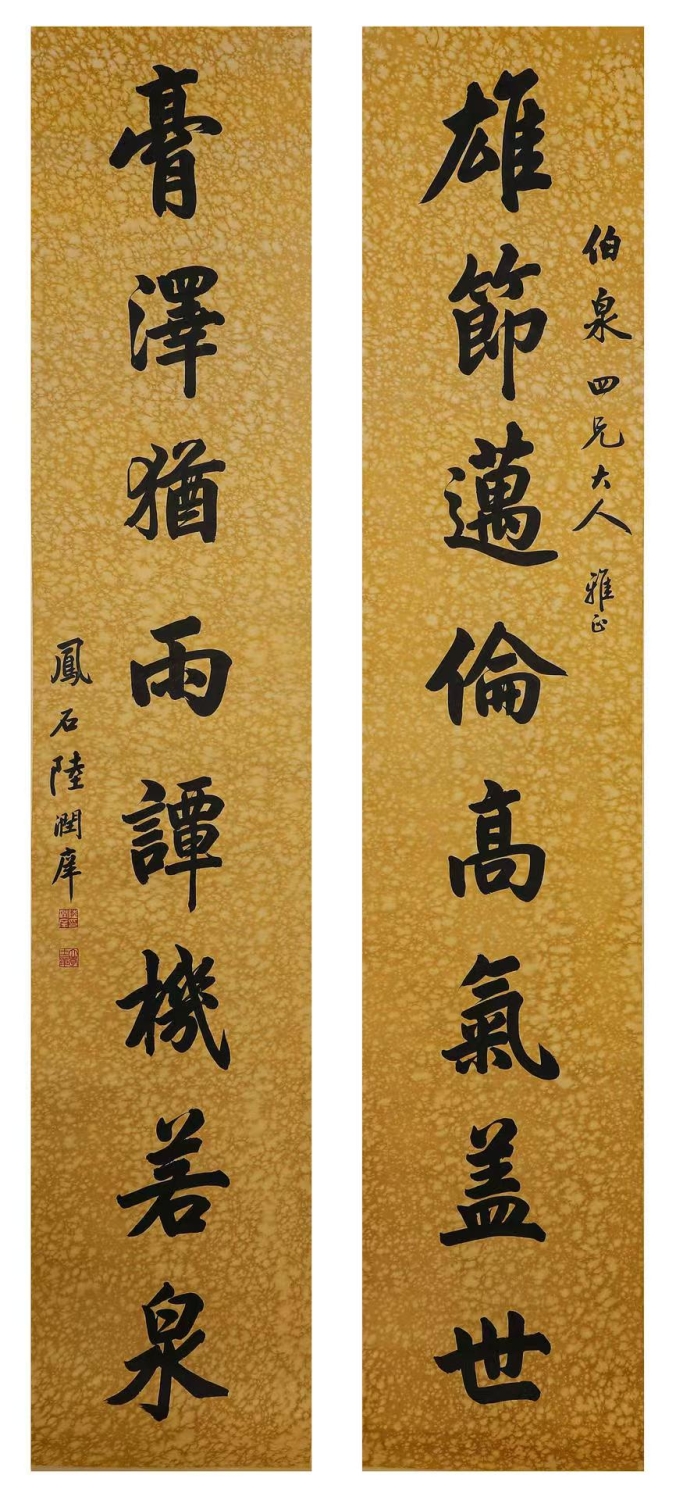 伯泉四兄大人雅正
雄節邁倫高氣盖世
膏澤猶雨譚機若泉
鳳石陸潤庠